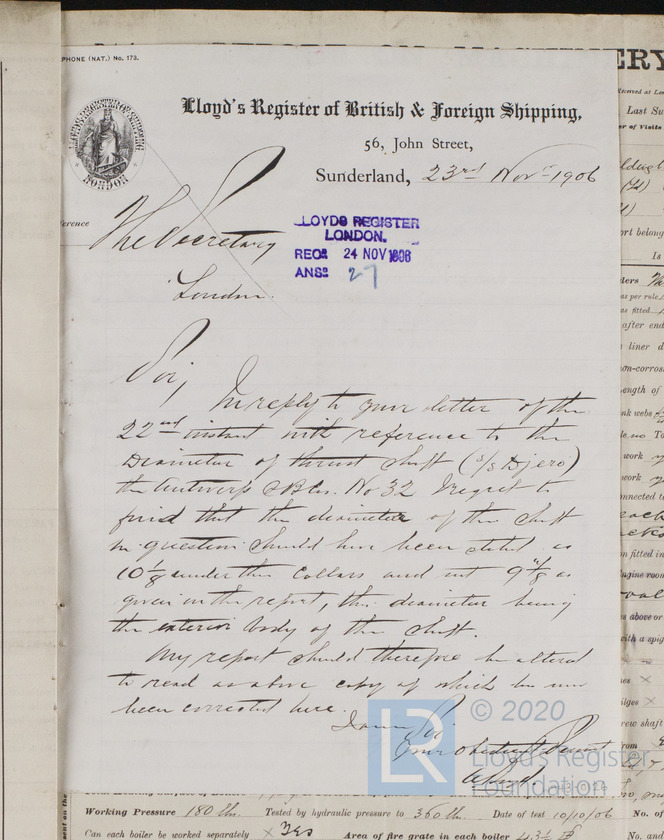 PHONE (NAT.) No. 173.
LONDON
Lloyd's Register of British & Foreign Shipping,
56, John Street,
Sunderland, 23rd Novr 1906
The Secretary
London.
LLOYDS REGISTER
LONDON.
RECD 24 NOV 1906
ANSD 27
Sir,
In reply to your letter of the
22nd instant with reference to the
Diameter of thrust shaft (s/s Djero)
the Antwerp No 32 I regret to
find that the diameter of the shaft
in question should have been stated as
10 1/8 under the collars and not 9 7/8 as
given in the report, this diameter being
the exterior body of the shaft.
My report should therefore be altered
to read as above copy of which has now
been corrected here.
I am Sir
Your obedient Servant
© 2020
Lloyd's Register
Foundation
ERY
Received at Lon
Last Su
er of Visits
ort belong
Is
as per rule
as fitted
after end
liner d
on-corros
ength of
nk webs
To
work
work
nnected t
on fitted in
ngine room
s above or
with a spig
rew shaft
from
Working Pressure 180 lb. Tested by hydraulic pressure to 360 lb. Date of test 10/10/06 No. of
Can each boiler be worked separately Yes Area of fire grate in each boiler No. and